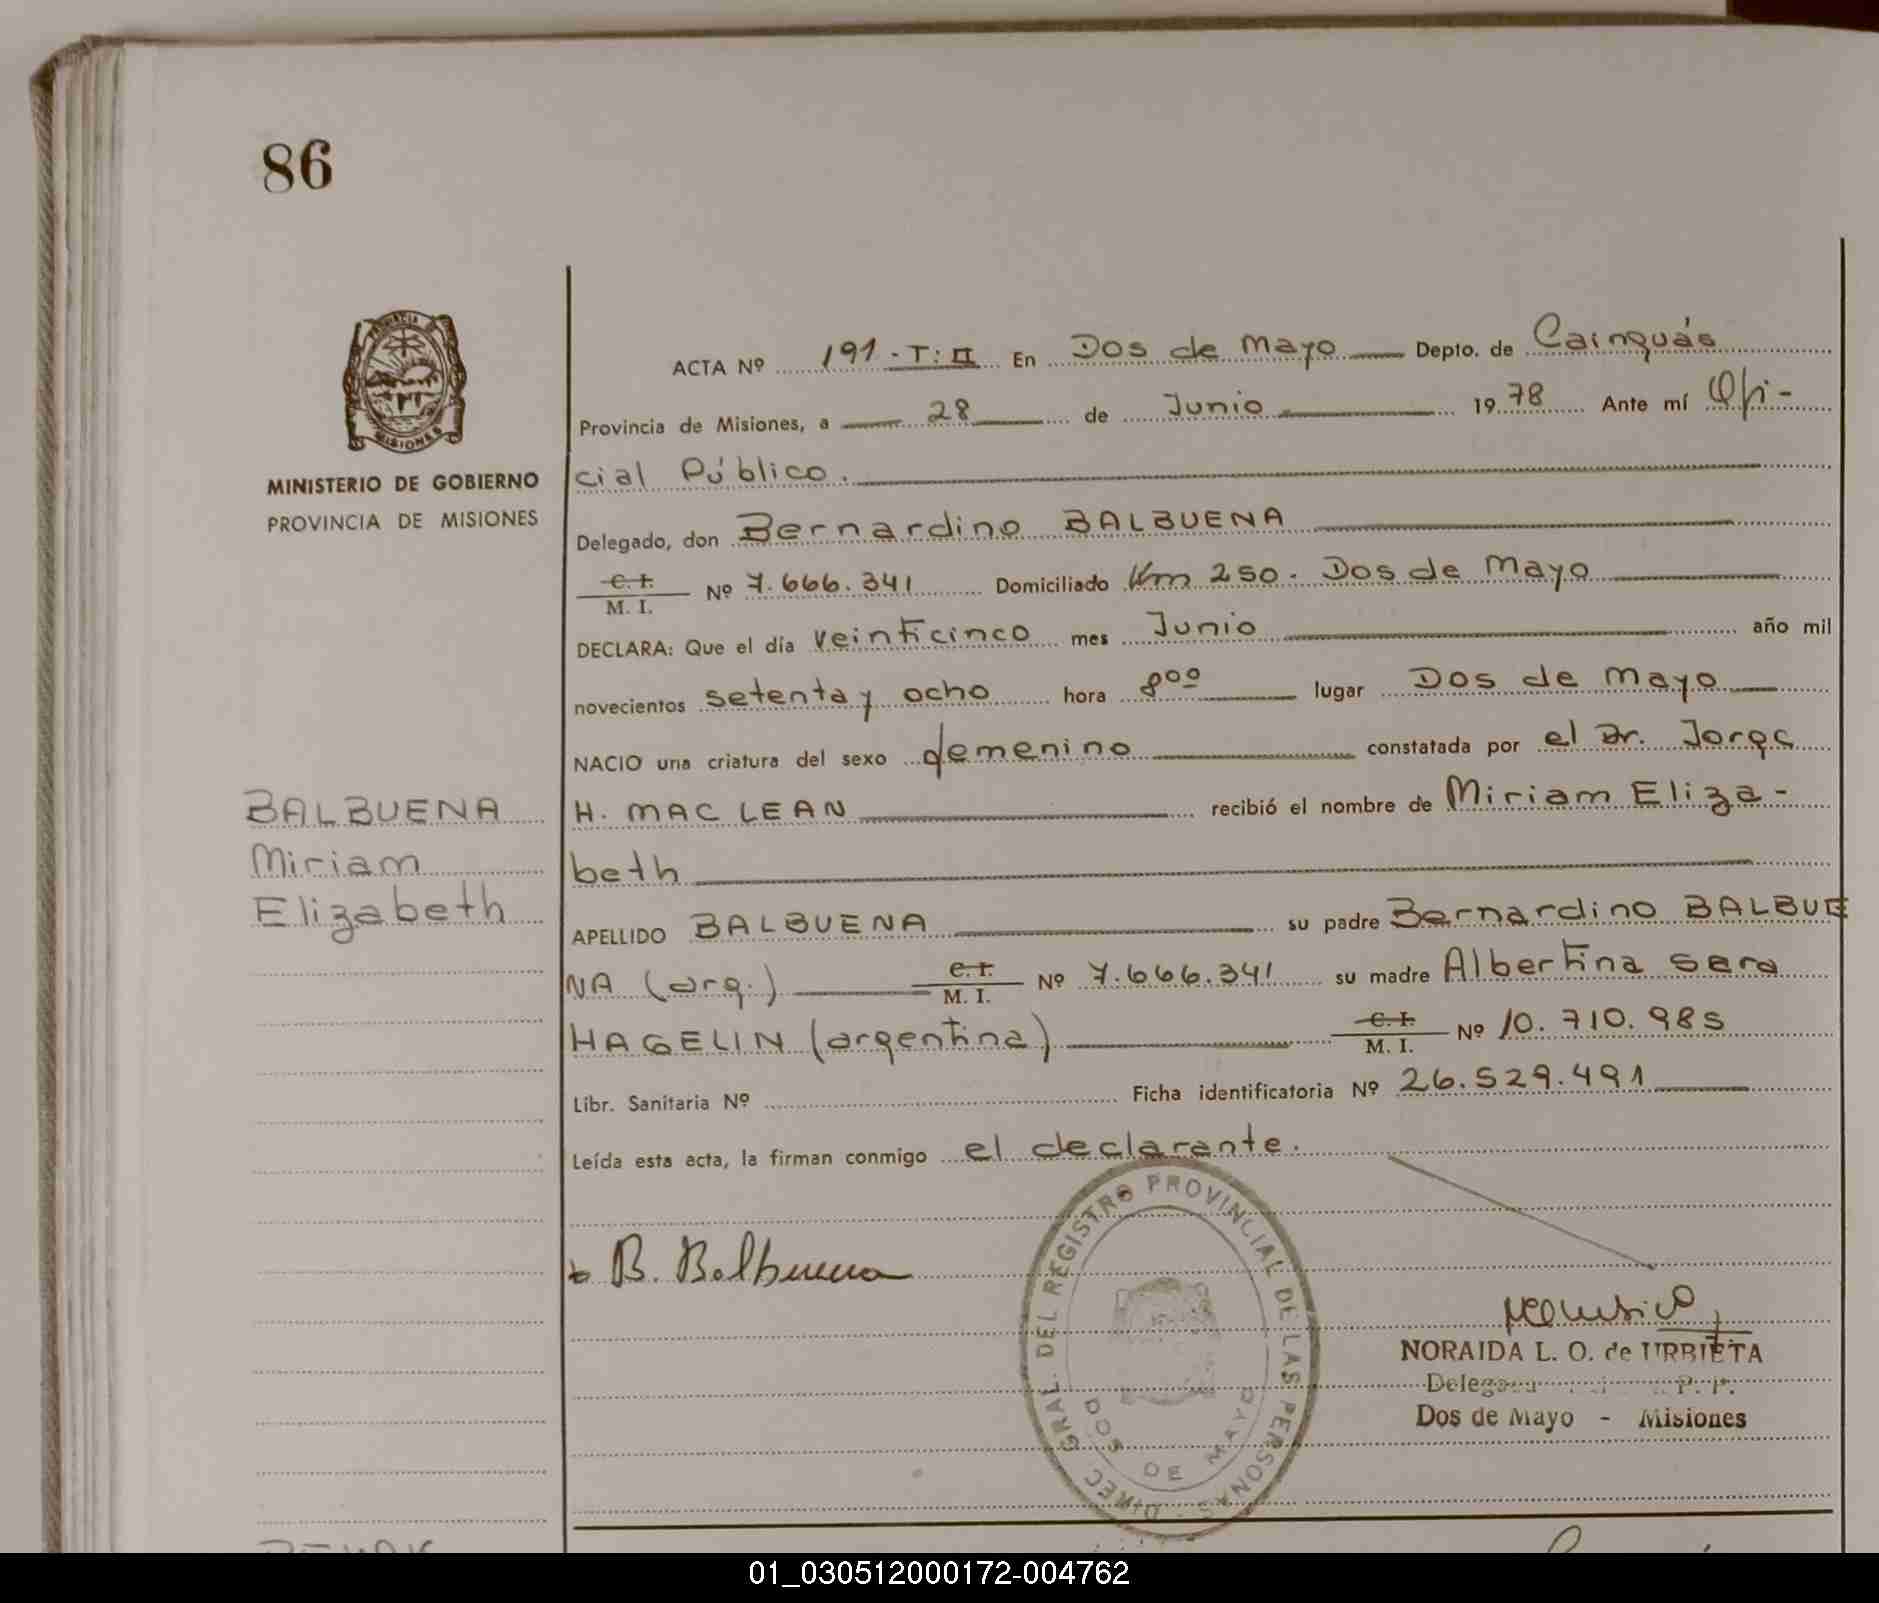 86
PROVINCIA
MISIONES
MINISTERIO DE GOBIERNO
PROVINCIA DE MISIONES
ACTA Nº 191-T:II En Dos de Mayo Depto. de Cainguás
Provincia de Misiones, a 28 de Junio 1978 Ante mí Ofi-
cial Público.
Delegado, don Bernardino BALBUENA
C. I. / M. I. Nº 7.666.341 Domiciliado Km 250. Dos de Mayo
DECLARA: Que el día veinticinco mes Junio año mil
novecientos setenta y ocho hora 8ºº lugar Dos de Mayo
NACIO una criatura del sexo femenino constatada por el Dr. Jorge
H. MAC LEAN recibió el nombre de Miriam Eliza-
beth
BALBUENA
Miriam
Elizabeth
APELLIDO BALBUENA su padre Bernardino BALBUE
NA (arg.) C. I. / M. I. Nº 7.666.341 su madre Albertina Sara
HAGELIN (argentina) C. I. / M. I. Nº 10.710.985
Libr. Sanitaria Nº Ficha identificatoria Nº 26.529.491
Leída esta acta, la firman conmigo el declarante.
B. Balbuena
DIREC. GRAL. DEL REGISTRO PROVINCIAL DE LAS PERSONAS
DOS DE MAYO
NORAIDA L. O. de URBIETA
Dos de Mayo - Misiones
01_030512000172-004762